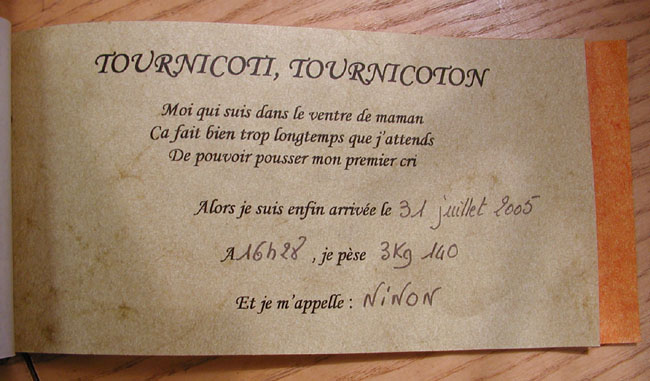 TOURNICOTI, TOURNICOTON
Moi qui suis dans le ventre de maman
Ca fait bien trop longtemps que j'attends
De pouvoir pousser mon premier cri
Alors je suis enfin arrivée le 31 juillet 2005
A 16h28, je pèse 3Kg 140
Et je m'appelle : NiNON